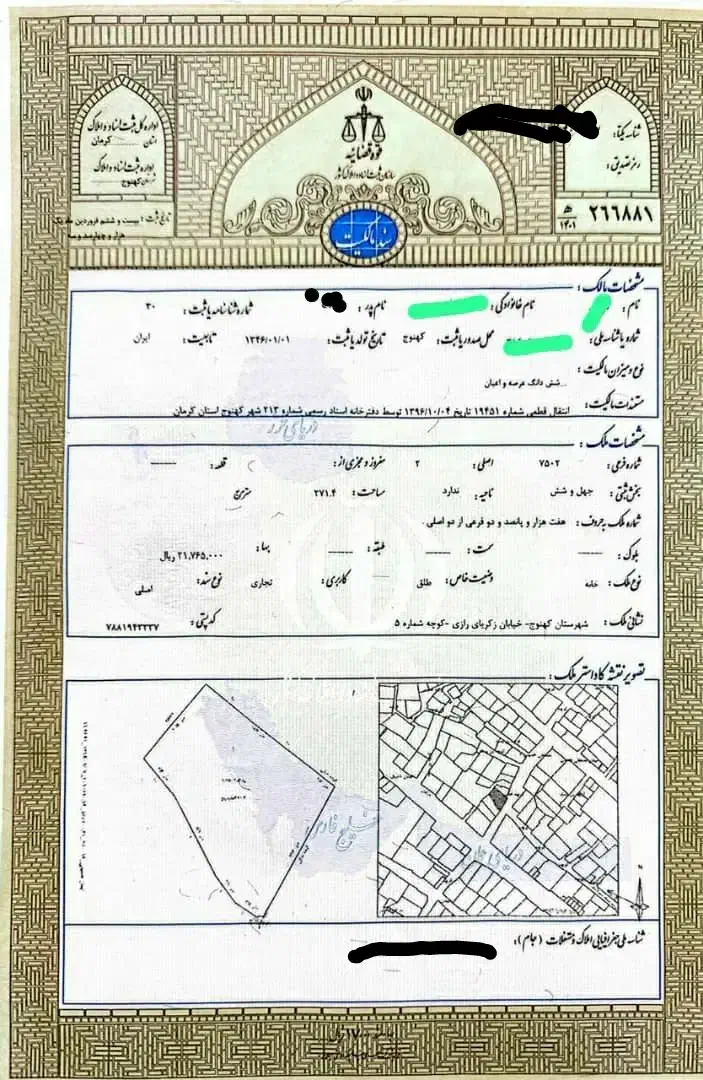 قوه قضائیه
سازمان ثبت اسناد و املاک کشور
سند مالکیت
اداره کل ثبت اسناد و املاک
استان کرمان
اداره ثبت اسناد و املاک
شهرستان کهنوج
تاریخ ثبت: بیست و ششم فروردین ماه یک
هزار و چهارصد و سه
شناسه یکتا:
رمز تصدیق:
۲۶۶۸۸۱
ه
۱۴۰۱
مشخصات مالک:
نام: نام خانوادگی: نام پدر: شماره شناسنامه یا ثبت: ۳۰
شماره یا شناسه ملی: محل صدور یا ثبت: کهنوج تاریخ تولد یا ثبت: ۱۳۴۶/۰۱/۰۱ تابعیت: ایران
نوع و میزان مالکیت:
شش دانگ عرصه و اعیان
مستندات مالکیت: انتقال قطعی شماره ۱۹۴۵۱ تاریخ ۱۳۹۶/۱۰/۰۴ توسط دفترخانه اسناد رسمی شماره ۲۱۳ شهر کهنوج استان کرمان
دریای خزر
مشخصات ملک:
شماره فرعی: ۷۵۰۲ اصلی: ۲ مفروز و مجزی از: قطعه: ------
بخش ثبتی: چهل و شش ناحیه: ندارد مساحت: ۲۷۱.۴ مترمربع
شماره ملک به حروف: هفت هزار و پانصد و دو فرعی از دو اصلی.
بلوک: ------ سمت: ------ طبقه: ------ بها: ۲۱,۷۶۵,۰۰۰ ریال
نوع ملک: خانه وضعیت خاص: طلق کاربری: تجاری نوع سند: اصلی
نشانی ملک: شهرستان کهنوج- خیابان زکریای رازی -کوچه شماره ۵ کدپستی: ۷۸۸۱۹۴۳۳۳۷
تصویر نقشه کاداستر ملک:
خلیج فارس
دریای عمان
N
شناسه ملی جغرافیایی املاک و مستغلات (جام):